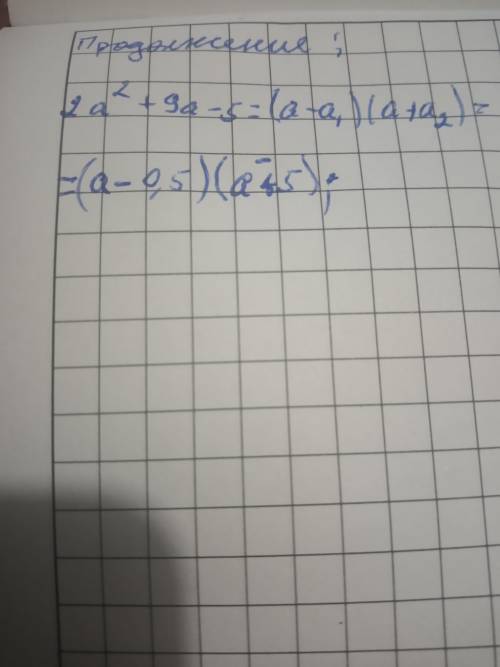 Продолжение:
2a² + 9a - 5 = (a - a₁)(a + a₂) =
= (a - 0,5)(a + 5);